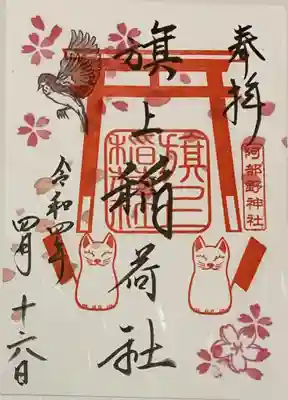 奉拝
阿部野神社
旗上稲荷社
旗上稲荷
令和四年
四月十六日